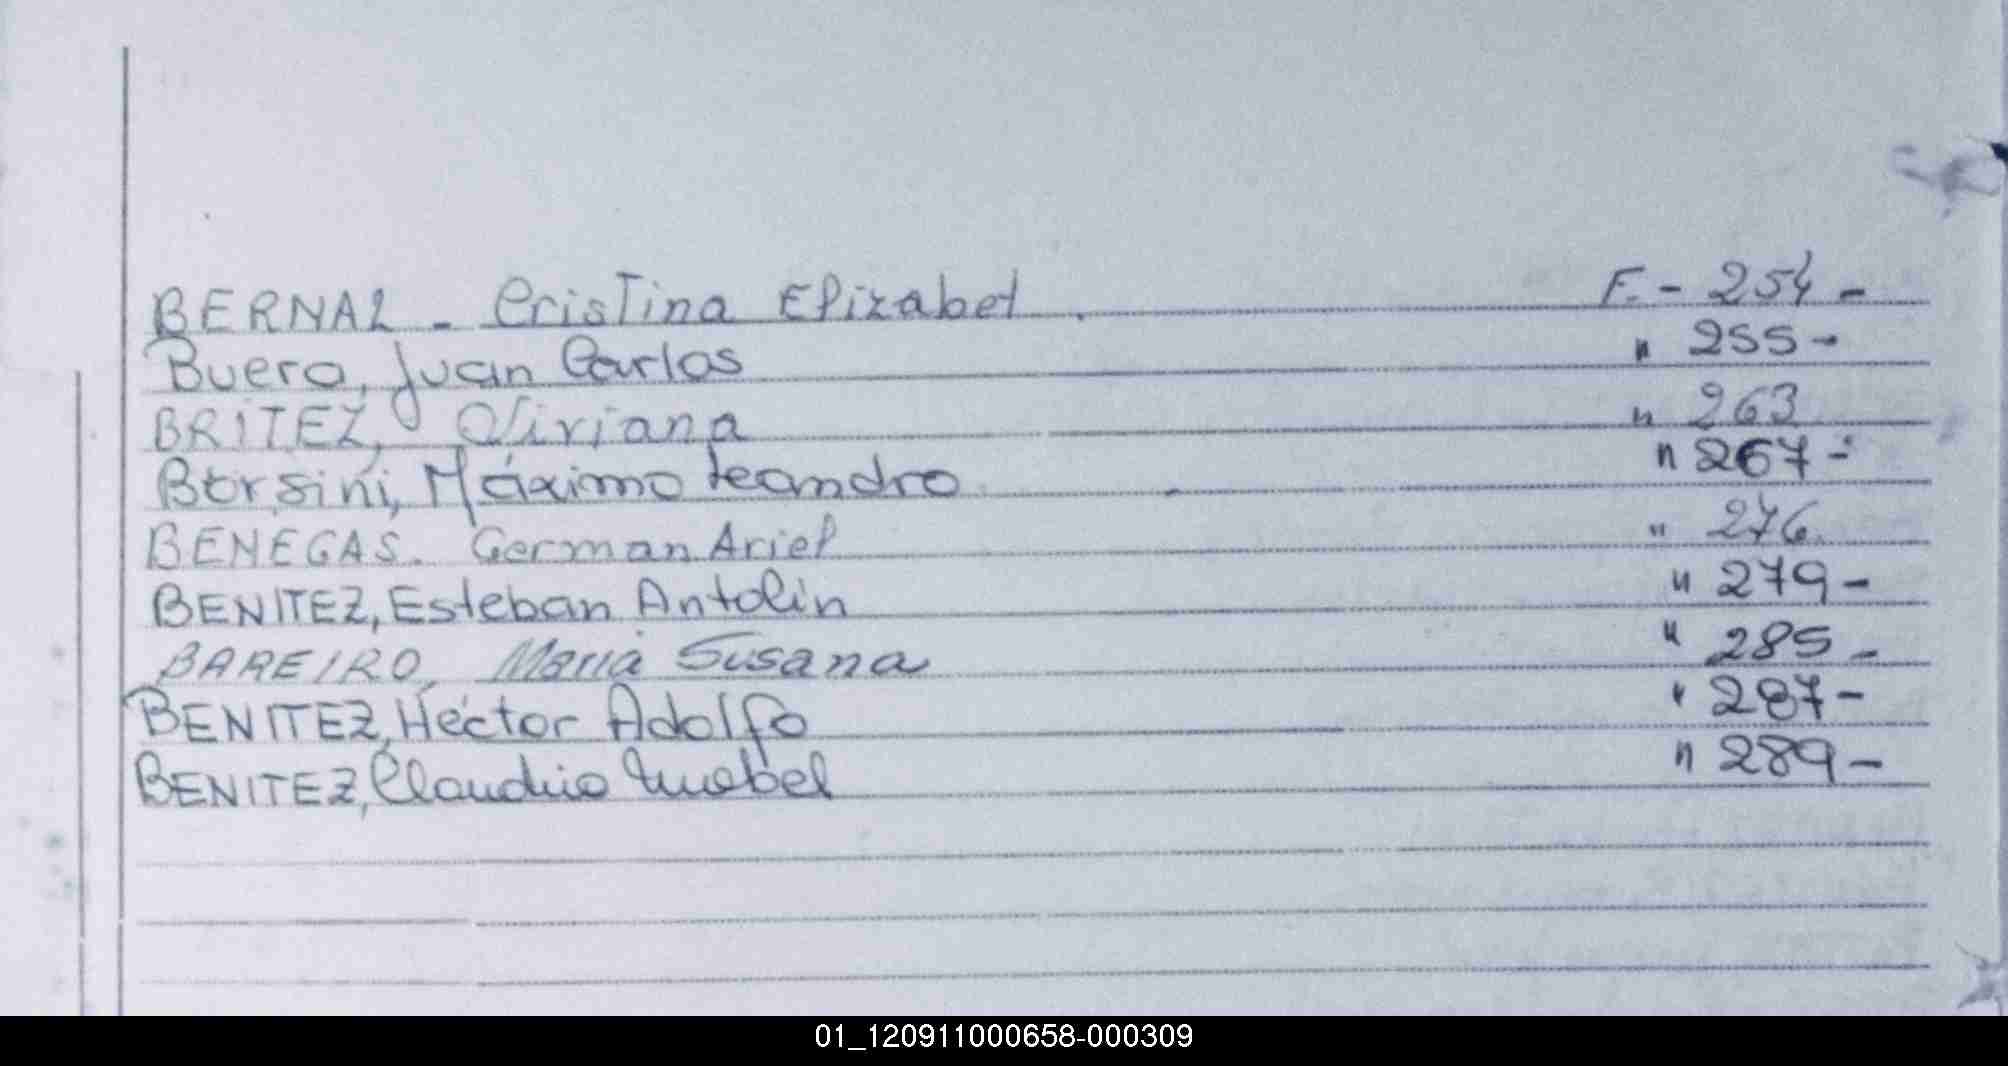 BERNAL - Cristina Elizabet . F. - 254 -
Buero, Juan Carlos " 255 -
BRITEZ, Viviana " 263
Borsini, Máximo Leandro " 267 -
BENEGAS. German Ariel " 276.
BENITEZ, Esteban Antolin " 279 -
BAREIRO, Maria Susana " 285 -
BENITEZ, Héctor Adolfo " 287 -
BENITEZ, Claudio " 289 -
01_120911000658-000309